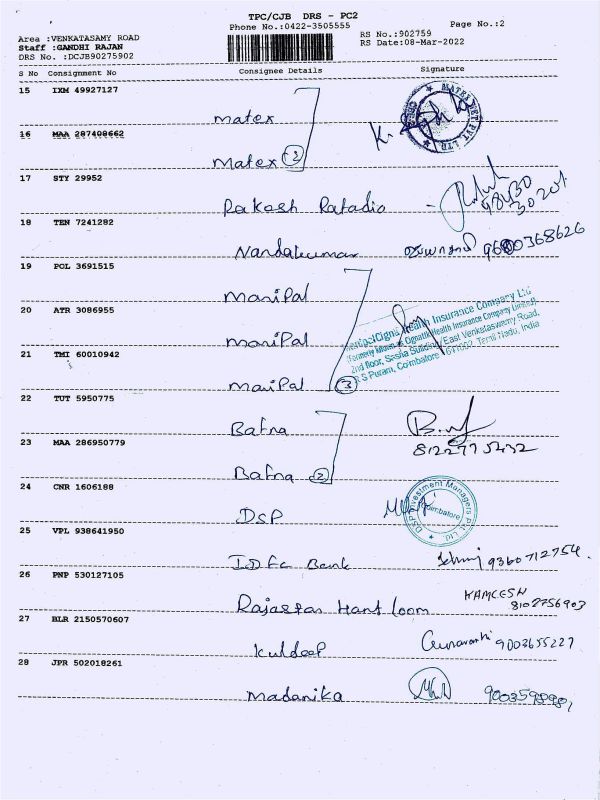 TPC/CJB DRS - PC2
Phone No.:0422-3505555
Page No.:2
Area :VENKATASAMY ROAD
RS No.:902759
Staff :GANDHI RAJAN
RS Date:08-Mar-2022
DRS No. :DCJB90275902
S No Consignment No Consignee Details Signature
15 IXM 49927127
matex
16 MAA 287408662
Matex 2
17 STY 29952
Rakesh Ratadia
98430
30201
18 TEN 7241282
Nandakumar 9600368626
19 POL 3691515
maniPal
20 ATR 3086955
maniPal
21 TMI 60010942
maniPal 3
Health Insurance Company Ltd
Health Insurance Company Limited)
2nd floor, East Venkataswamy Road,
R S Puram, Coimbatore Tamil Nadu, India
22 TUT 5950775
Bafna
23 MAA 286950779
8122775432
Bafna 2
24 CNR 1606188
DSP
DSP Investment Managers Pvt Ltd
Coimbatore
25 VPL 938641950
IDFC Bank 9360712754
26 PNP 530127105
Rajastan Hant loom
KAMLESH
8102756903
27 BLR 2150570607
kuldeep 9003655227
28 JPR 502018261
Madanika